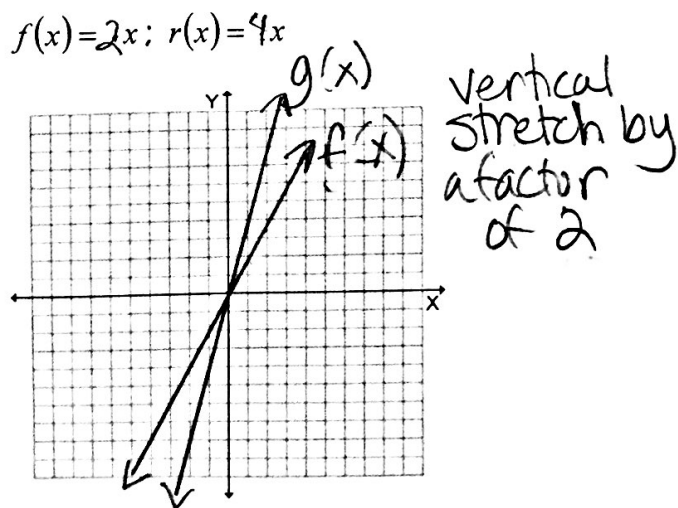 f(x)=2x; r(x)=4x
g(x)
Y
f(x)
X
vertical
stretch by
a factor
of 2